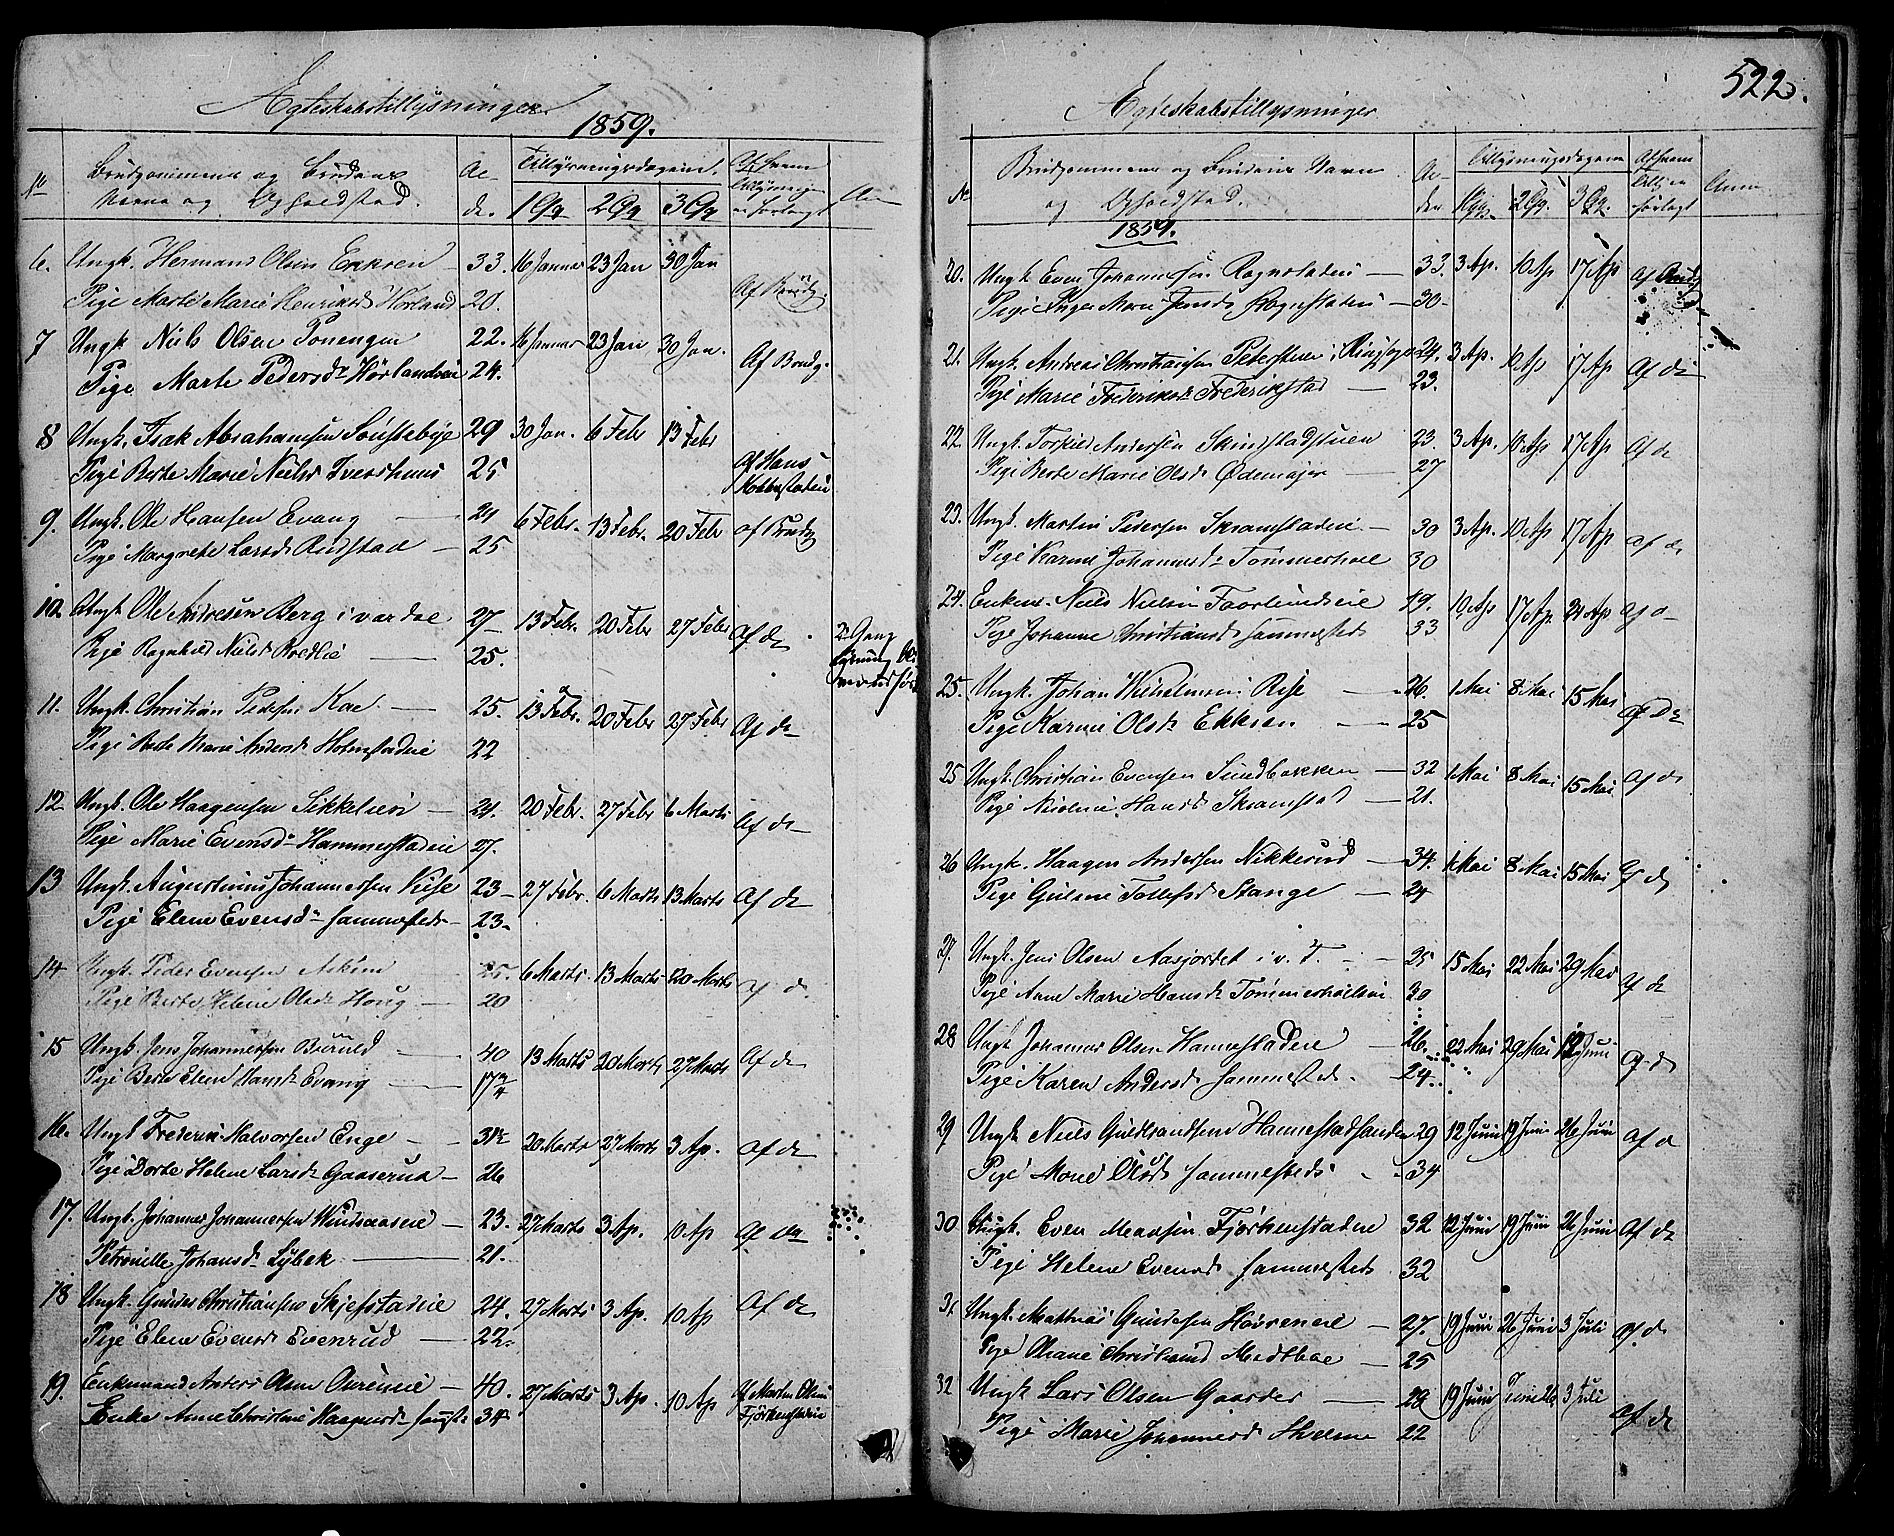 Egteskabstillysninger
1859.
No Brudgommens og Brudens Navn og Opholdsted. Alder. Tillysningsdagene. 1 Gg 2 Gg 3 Gg Af hvem Tillysning er forlangt
6. Ungk. Hermans Olsen Ekksen — 33. 16 Januar 23 Jan 30 Jan
Pige Marte Marie Henriksd Horland 20. Af Brudg
7 Ungk Niels Olsen Ponengen 22. 16 Januar 23 Jan 30 Jan. Af Brudg.
Pige Marte Pedersdr Hørlandseie 24.
8 Ungk. Isak Abrahamsen Soustebye 29 30 Jan. 6 Febr 13 Febr
Pige Berte Marie Nielsd Ivershuus 25 Af Hans Kolbustadeie
9. Ungk. Ole Hansen Evang — 24 6 Febr. 13 Febr. 20 Febr af Brudg
Pige Margrete Larsd Rudstad — 25
10. Ungk Ole Andresen Berg i vardal 27 13 Febr. 20 Febr 27 Febr Af do
Pige Ragnhild Nielsd Bredlie — 25.
11. Ungk. Christian Pedersen Kae — 25. 13 Febr. 20 Febr 27 Febr Af do
Pige Berte Marie Andersd Holmstadeie 22
12 Ungk. Ole Haagensen Sikkelseie — 24. 20 Febr. 27 Febr 6 Marts Af do
Pige Marie Evensdr Hammerstadeie 27.
13 Ungk. Augustinus Johannessen Kise 23 — 27 Febr. 6 Marts 13 Marts Af do
Pige Elene Evensdr sammesteds — 23.
14 Ungk. Peder Evensen Askim 25. 6 Marts 13 Marts 20 Marts Af do
Pige Berte Helene Olsdr Houg — 20
15 Ungk. Jens Johannessen Buruld — 40 13 Marts 20 Marts 27 Marts Af do
Pige Berte Elene Hansdr Evang — 17 3/4
16. Ungk Frederik Halvorsen Enge — 31½ 20 Marts 27 Marts 3 Ap. Af do
Pige Dorte Helene Larsdr Gaaserud — 26
17. Ungk. Johannes Johannessen Windsaaseie — 23. 27 Marts 3 Ap. 10 Ap Af do
Petronille Johansdr Lybek — 21.
18 Ungk. Gunder Christiansen Skjefstadeie 24. 27 Marts 3 Ap. 10 Ap Af do
Pige Elene Evensdr Evenrud — 22.
19. Enkemand Anders Olsen Aureneie — 40. 27 Marts 3 Ap. 10 Ap Af Morten Olsen Fjørkenstadeie
Enke Anne Christine Haagensdr samst. 34
522.
Egteskabstillysninger
No Brudgommens og Brudens Navn og Opholdsted. Alder Tillysningsdagene 1 Gg. 2 Gg. 3 Gg. Af hvem Tillysn forlagt Anm
1859.
20. Ungk Even Johannesen Rognstadeie — 33. 3 Ap. 10 Ap 17 Ap Af Brudg
Pige Inger Marie Jensdr Rognstadeie — 30
21. Ungk. Andreas Christiansen Peterstuen i Ringsager 24. 3 Ap. 10 Ap 17 Ap Af do
Pige Marie Frederiksdr Frederikstad — 23.
22. Ungk. Torkild Andersen Skrinstadstuen 23. 3 Ap. 10 Ap 17 Ap Af do
Pige Berte Marie Olsd Ødemajer — 27
23. Ungk. Martin Pedersen Skramstadeie — 30 3 Ap. 10 Ap 17 Ap af do
Pige Karine Johannesdr Tommerhoel 30
24. Enkem. Niels Nielsen Faarlundseie 49. 10 Ap 17 Ap. 24 Ap af do
Pige Johanne Christiansdr sammesteds 33
25. Ungk. Johan Wilhelmsen Rise — 26. 1 Mai 8 Mai 15 Mai af do
Pige Karine Olsdr Ekksen — 25
25 Ungk. Christian Evensen Sundbakken — 32 1 Mai 8 Mai 15 Mai Af do
Pige Nicoline Hansd Skramstad — 21.
26 Ungk. Haagen Andersen Nikkerud — 34. 1 Mai 8 Mai 15 Mai Af do
Pige Guline Tollefsd Stange — 24
27. Ungk. Jens Olsen Aasjordet i v. T. — 25 15 Mai 22 Mai 29 Mai Af do
Pige Anne Marie Hansdr Tommerhollen 30
28 Ungk Johannes Olsen Hannestadeie — 26. 22 Mai 29 Mai 12 Juni Af do
Pige Karen Andersd sammesteds. — 24.
29 Ungk Niels Guldbrandsen Hannestadsanden 29 12 Juni 19 Juni 26 Juni Af do
Pige Marie Olsdr sammesteds — 34
30 Ungk. Even Madsen Fjørkenstadeie 32 12 Juni 19 Juni 26 Juni Af do
Pige Helene Evensd sammesteds 32
31 Ungk Mathias Gundersen Høireneie — 27. 19 Juni 26 Juni 3 Juli af do
Pige Oliane Christiansd Midtboe — 25
32 Ungk Lars Olsen Gaarder — 28 19 Juni Juni 26 3 Juli af do
Pige Marie Johannesd Hvalme 22